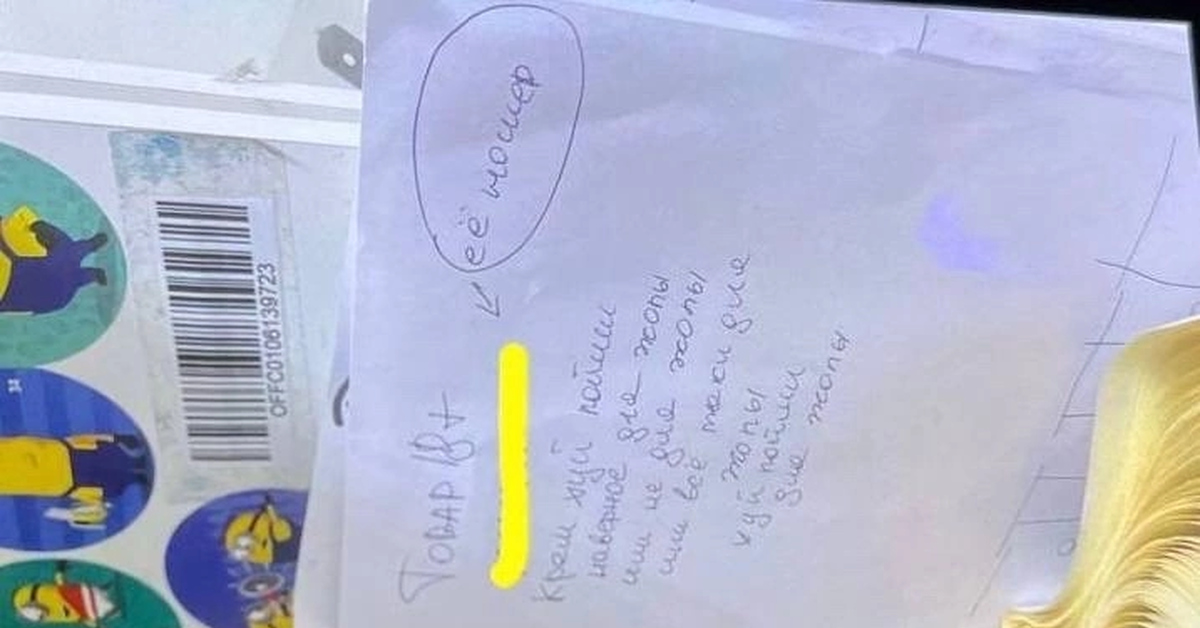 её номер
Товар В+
Крем хуй пойми
наверное для жопы
или не для жопы
или всё таки для
жопы
хуй пойми
для жопы
OFFC0106139723